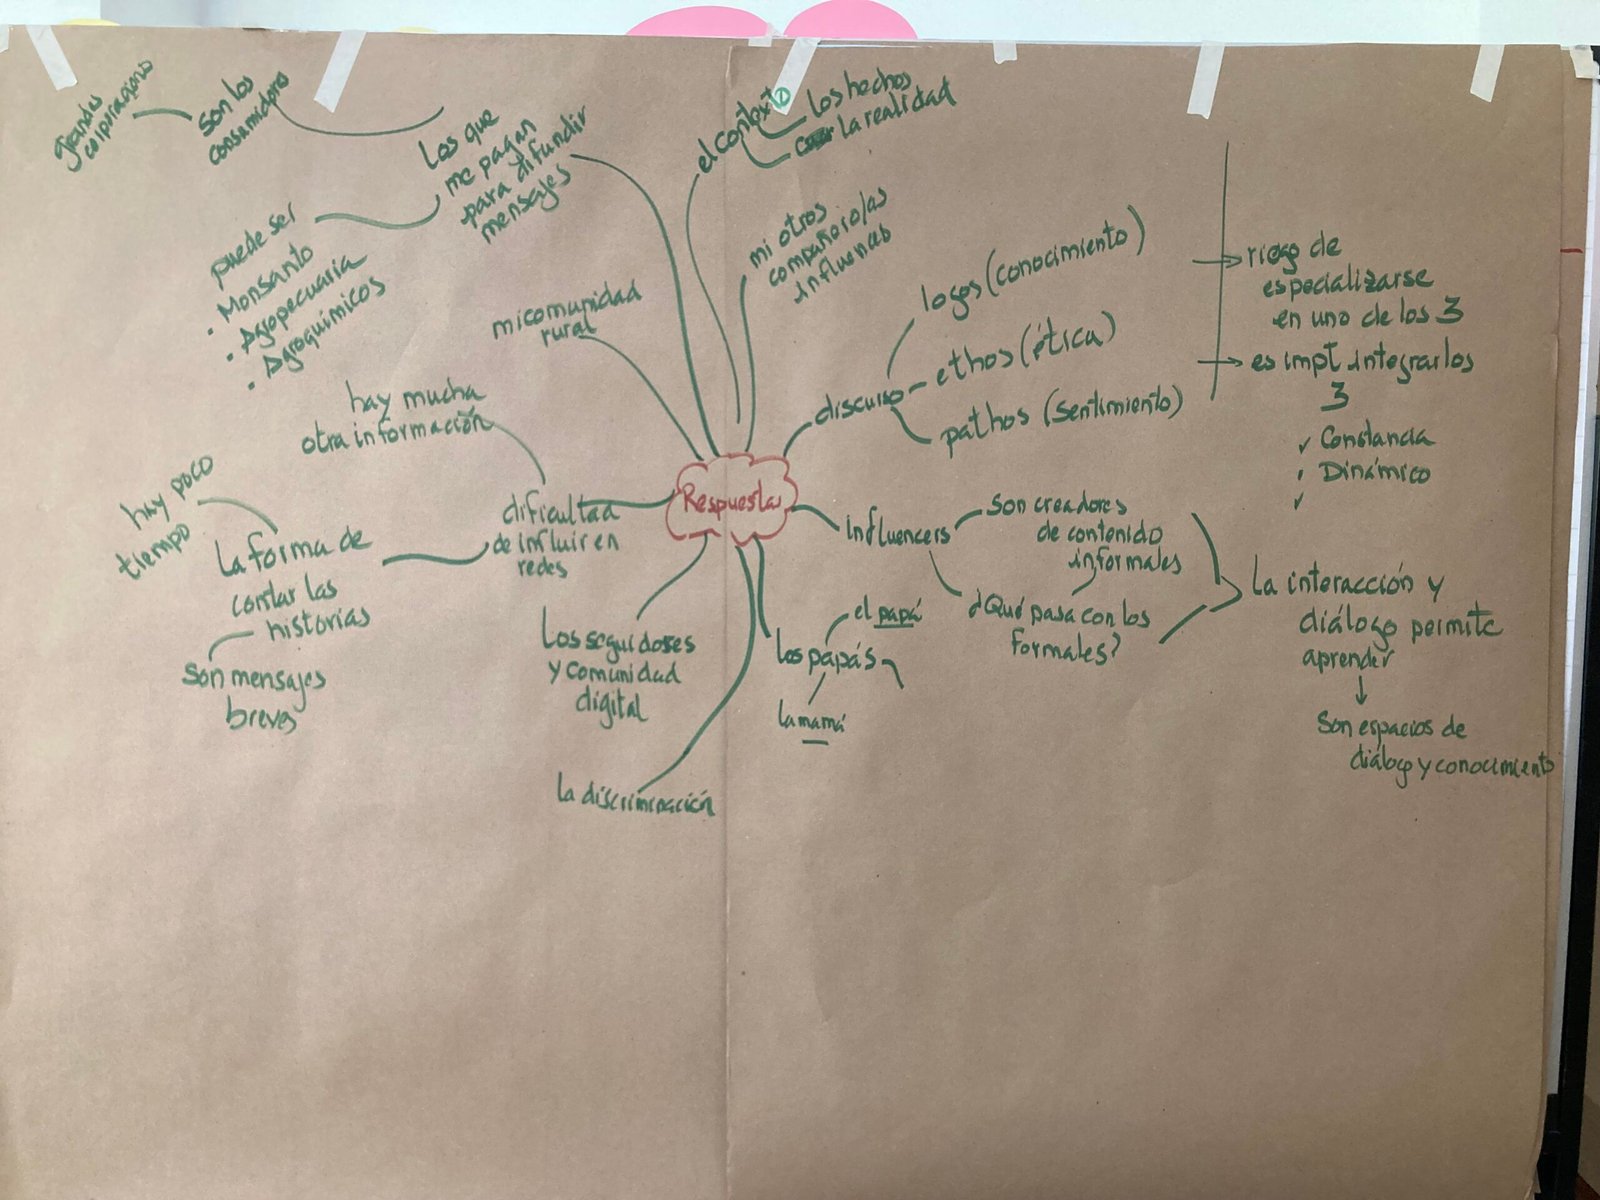 Respuesta
el contexto
los hechos
la realidad
mi otros
compañero/as
influences
discurso
logos (conocimiento)
ethos (ética)
pathos (sentimiento)
riesgo de
especializarse
en uno de los 3
es impt. integrarlos
3
✓ Constancia
Dinámico
✓
influencers
Son creadores
de contenido
informales
¿Qué pasa con los
formales?
La interacción y
diálogo permite
aprender
Son espacios de
diálogo y conocimiento
los papás
el papá
la mamá
la discriminación
Los seguidores
y comunidad
digital
dificultad
de influir en
redes
hay mucha
otra información
La forma de
contar las
historias
hay poco
tiempo
Son mensajes
breves
mi comunidad
rural
Los que
me pagan
para difundir
mensajes
puede ser
• Monsanto
• Agropecuaria
• Agroquímicos
Son los
consumidores
grandes
corporaciones